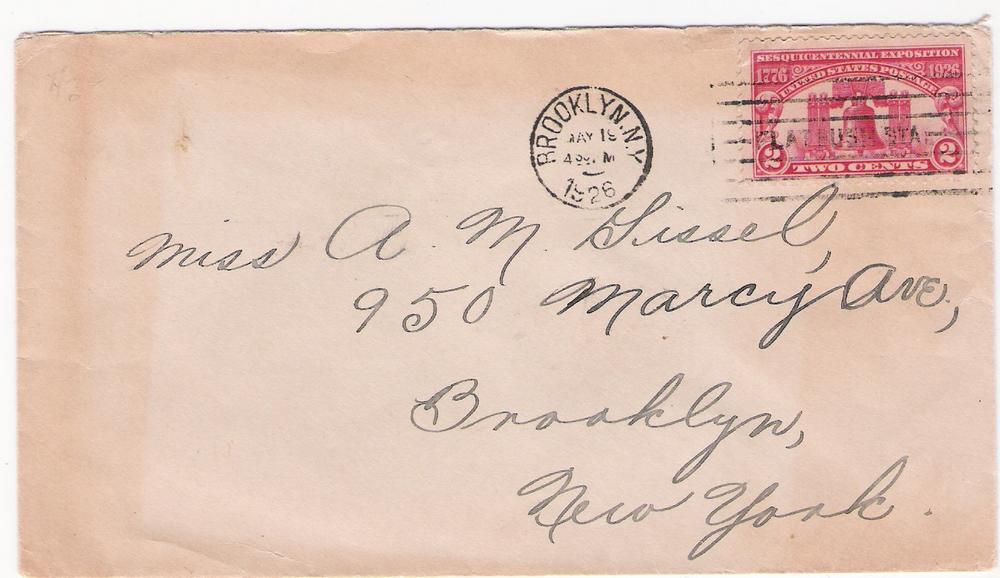 SESQUICENTENNIAL EXPOSITION
1776 UNITED STATES POSTAGE 1926
FLATBUSH STA.
2 TWO CENTS 2
BROOKLYN, N.Y.
MAY 18
4 PM
1926
Miss A. M. Sissel,
950 Marcy Ave.,
Brooklyn,
New York.